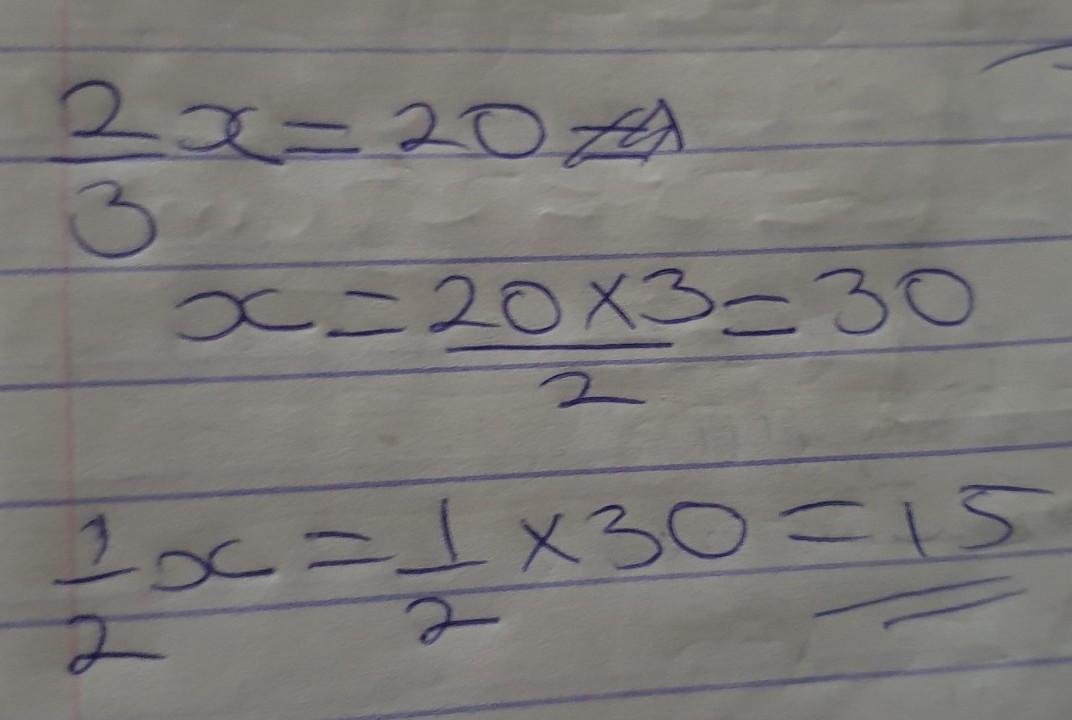 2/3 x = 20
x = 20 × 3 / 2 = 30
1/2 x = 1/2 × 30 = 15